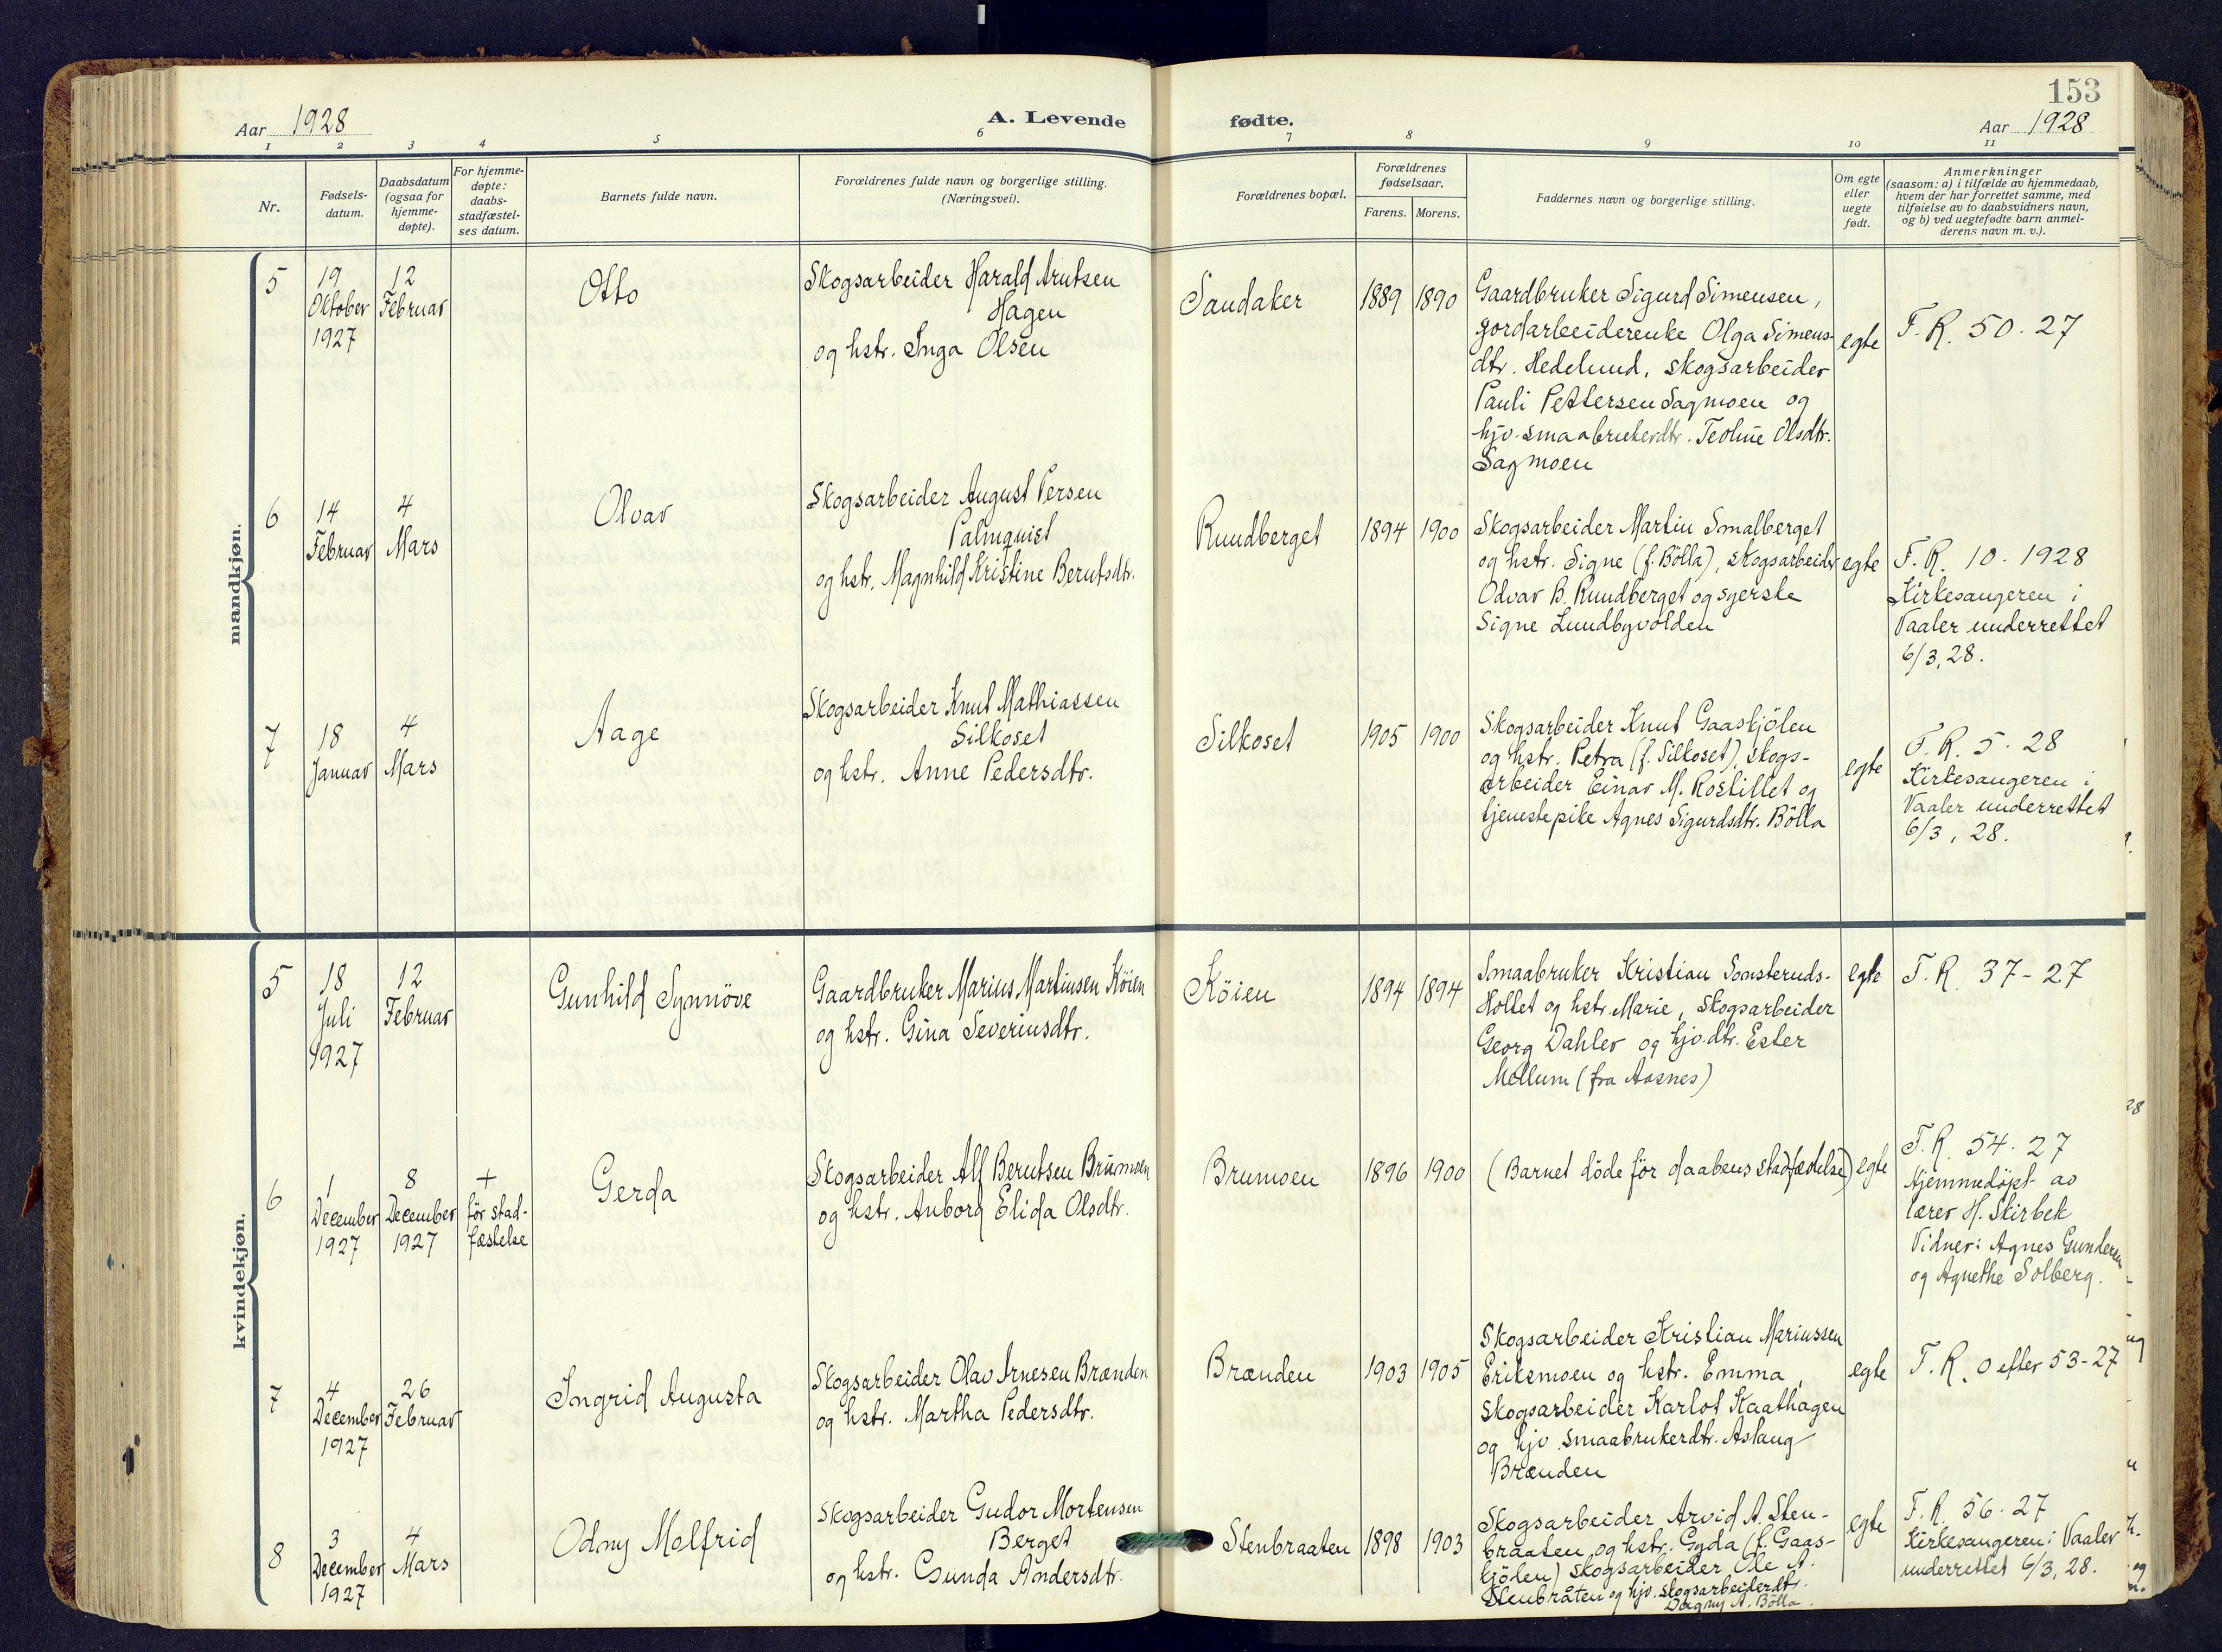 153
Aar 1928
A. Levende fødte.
Aar 1928
1 2 3 4 5 6 7 8 9 10 11
Nr.
Fødsels-
datum.
Daabsdatum
(ogsaa for
hjemme-
døpte).
For hjemme-
døpte:
daabs-
stadfæstel-
ses datum.
Barnets fulde navn.
Forældrenes fulde navn og borgerlige stilling.
(Næringsvei).
Forældrenes bopæl.
Forældrenes
fødselsaar.
Farens. Morens.
Faddernes navn og borgerlige stilling.
Om egte
eller
uegte
født.
Anmerkninger
(saasom: a) i tilfælde av hjemmedaab,
hvem der har forrettet samme, med
tilføielse av to daabsvidners navn,
og b) ved uegtefødte barn anmel-
derens navn m. v.).
mandkjøn.
5
19
Oktober
1927
12
Februar
Otto
Skogsarbeider Harald Arntsen
Hagen
og hstr. Inga Olsen
Sandaker
1889
1890
Gaardbruker Sigurd Simensen,
gordarbeiderenke Olga Simens-
dtr. Hedelund, skogsarbeider
Pauli Pettersen Sagmoen og
hjv. smaabrukerdtr. Teoline Olsdtr.
Sagmoen
egte
F. R. 50. 27
6
14
Februar
4
Mars
Olvar
Skogsarbeider August Persen
Palmquist
og hstr. Magnhild Kristine Berntsdtr.
Rundberget
1894
1900
Skogsarbeider Martin Smalberget
og hstr. Signe (f. Bölla), skogsarbeider
Odvar B. Rundberget og syerske
Signe Lundbyvolden
egte
F. R. 10. 1928
Kirkesangeren i
Vaaler underrettet
6/3, 28.
7
18
Januar
4
Mars
Aage
Skogsarbeider Knut Mathiassen
Silkoset
og hstr. Anne Pedersdtr.
Silkoset
1905
1900
Skogsarbeider Knut Gaaskjölen
og hstr. Petra (f. Silkoset), skogs-
arbeider Einar M. Rostillet og
tjenestepike Agnes Sigurdsdtr. Bölla
egte
F. R. 5. 28
Kirkesangeren i
Vaaler underrettet
6/3, 28.
kvindekjøn.
5
18
Juli
1927
12
Februar
Gunhild Synnöve
Gaardbruker Marius Martinsen Köien
og hstr. Gina Severinsdtr.
Köien
1894
1894
Smaabruker Kristian Sonsteruds-
Hollet og hstr. Marie, skogsarbeider
Georg Dahler og hjv. dtr. Ester
Mellum (fra Aasnes)
egte
F. R. 37-27
6
1
December
1927
8
December
1927
+
för stad-
fæstelse
Gerda
Skogsarbeider Alf Berntsen Brumoen
og hstr. Anborg Elida Olsdtr.
Brumoen
1896
1900
(Barnet döde för daabens stadfædelse)
egte
F. R. 54. 27
Hjemmedöpt av
lærer H. Skirbek
Vidner: Agnes Gundersen
og Agnethe Solberg.
7
4
December
1927
26
Februar
Ingrid Augusta
Skogsarbeider Olav Arnesen Brænden
og hstr. Martha Pedersdtr.
Brænden
1903
1905
Skogsarbeider Kristian Mariussen
Eriksmoen og hstr. Emma,
Skogsarbeider Karlot Kaathagen
og hjv. smaabrukerdtr. Aslaug
Brænden
egte
F. R. 0 efter 53-27
8
3
December
1927
4
Mars
Odny Molfrid
Skogsarbeider Gudor Mortensen
Berget
og hstr. Gunda Andersdtr.
Stenbraaten
1898
1903
Skogsarbeider Arvid A. Sten-
braaten og hstr. Gyda (f. Gaas-
kjölen) skogsarbeider Ole A.
Stenbråten og hjv. skogsarbeiderdtr.
Dagny A. Bölla.
egte
F. R. 56. 27
Kirkesangeren i Vaaler
underrettet 6/3, 28.